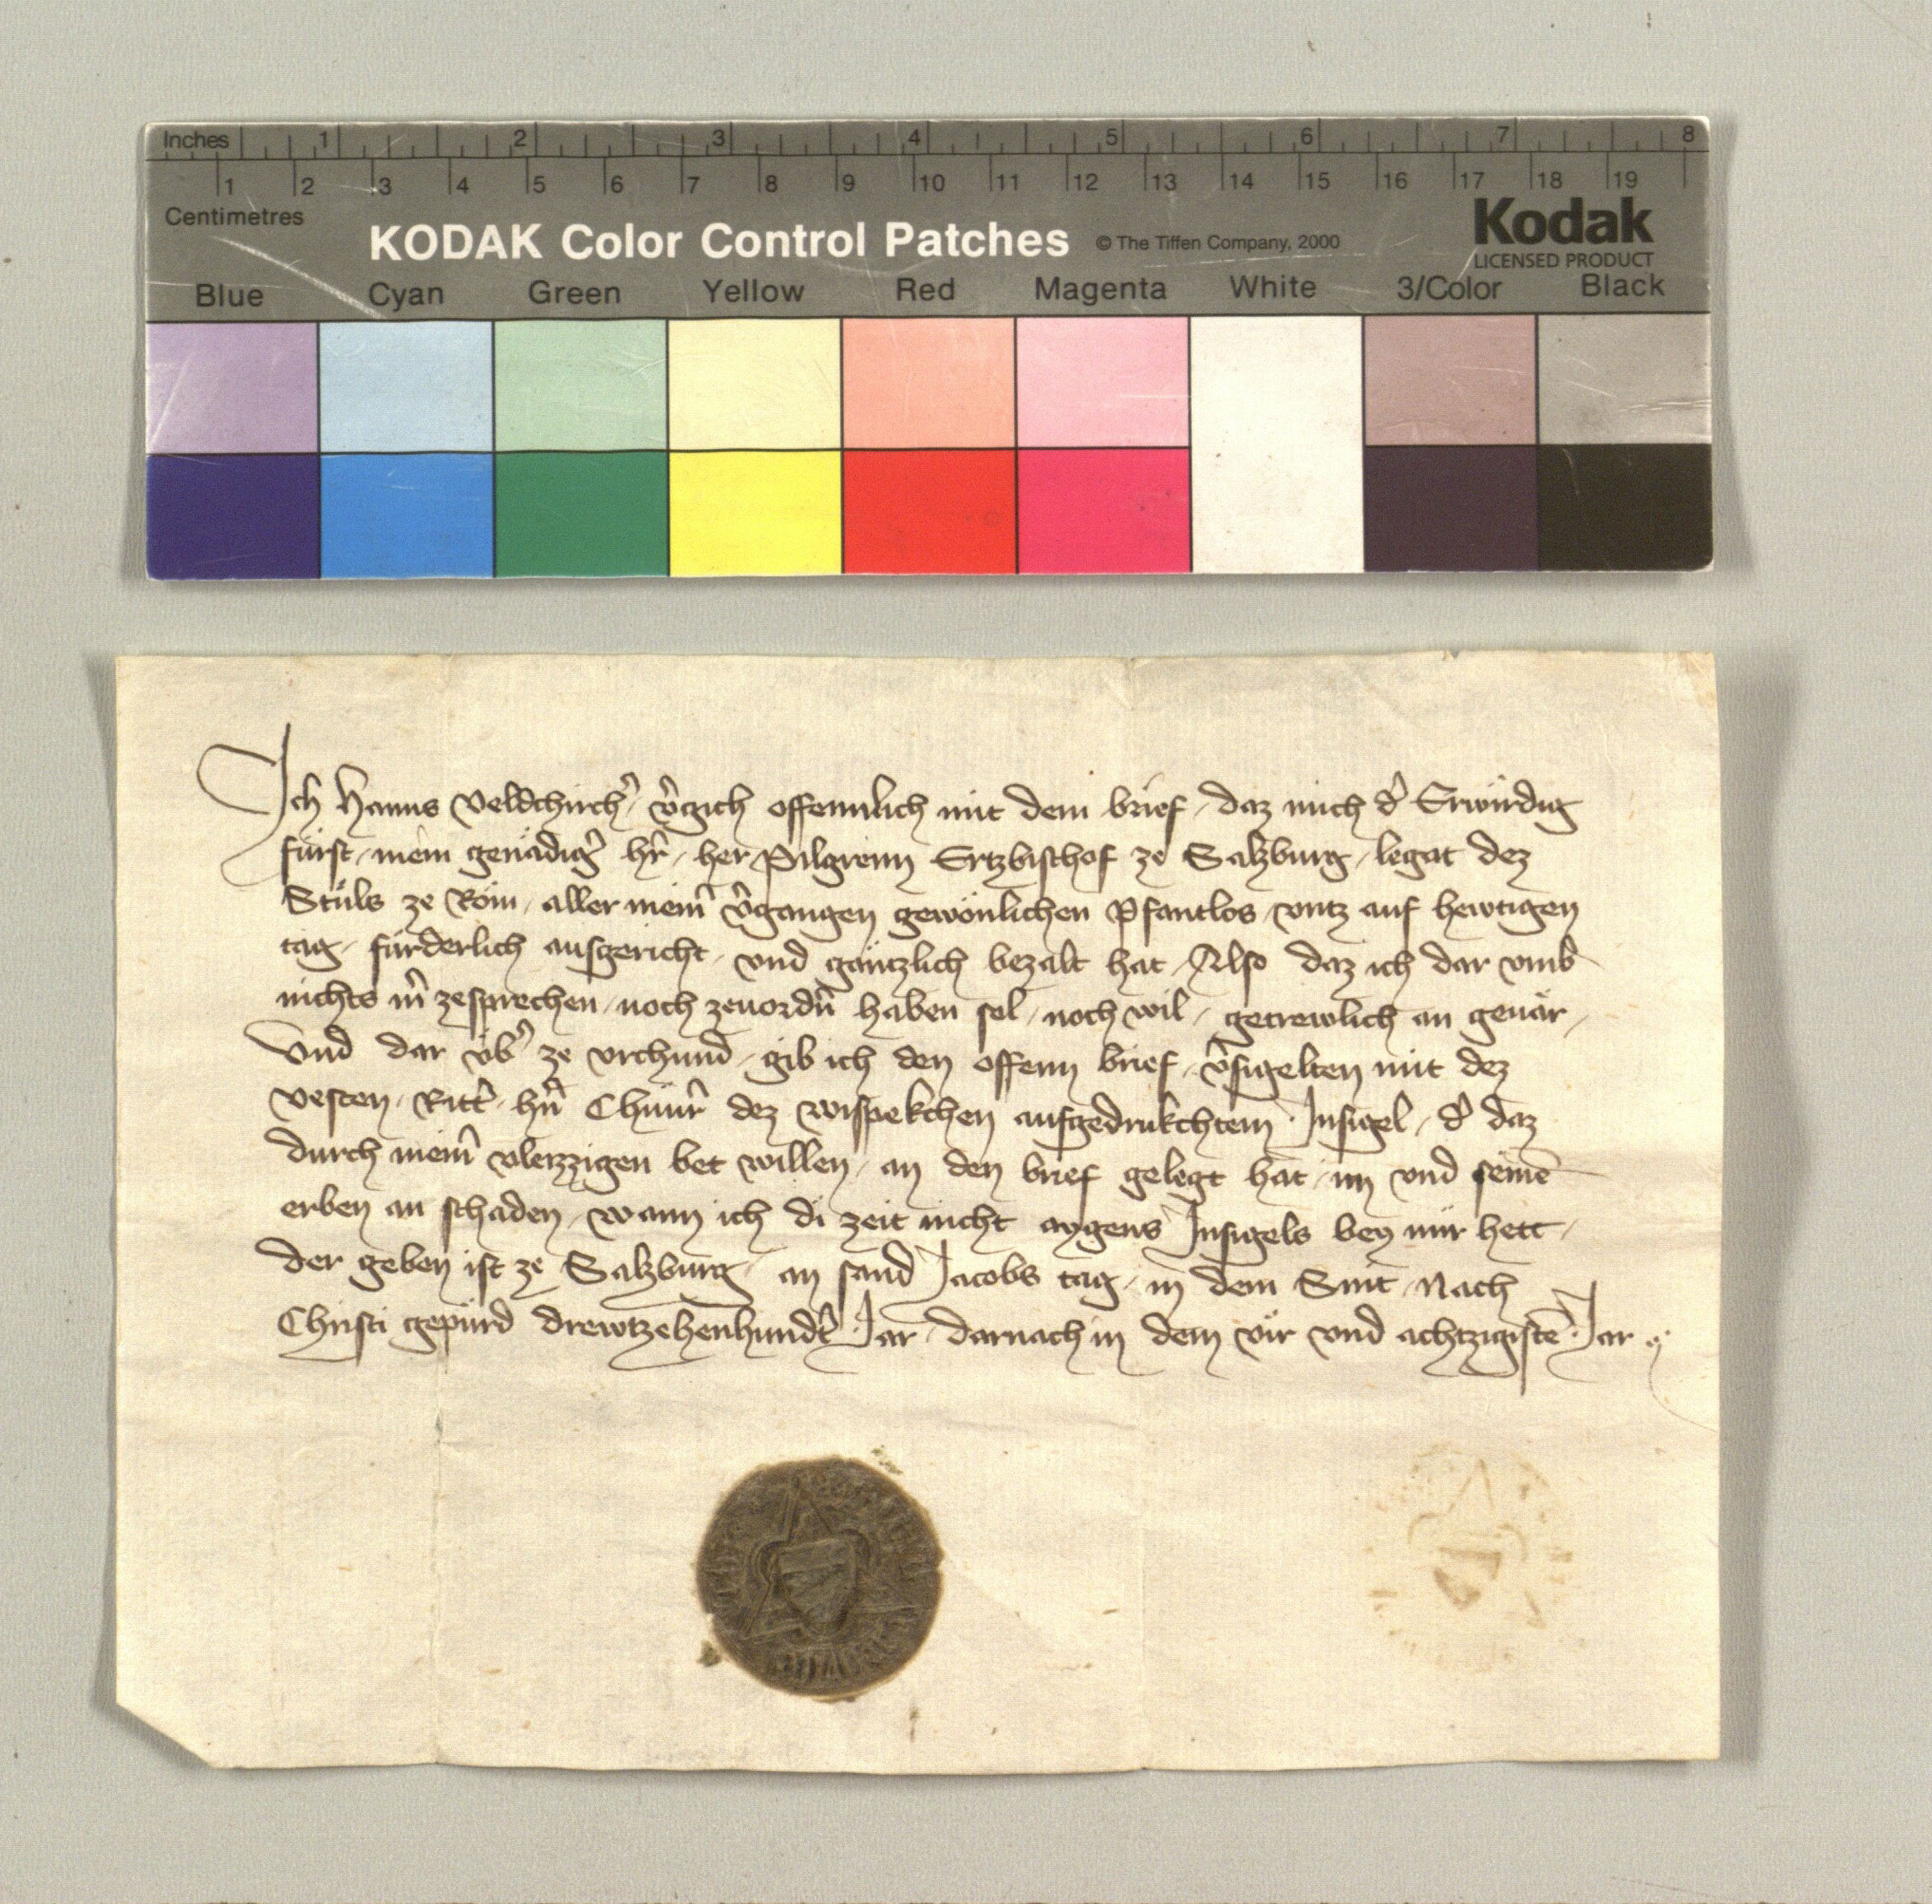 Inches 1 2 3 4 5 6 7 8
1 2 3 4 5 6 7 8 9 10 11 12 13 14 15 16 17 18 19
Centimetres
KODAK Color Control Patches © The Tiffen Company, 2000 Kodak
LICENSED PRODUCT
Blue Cyan Green Yellow Red Magenta White 3/Color Black
Ich Hanns Veldchirch̾ / v̾gich offennlich mit dem brief / daz mich d̾ Erwirdig
fürst / mein genädig̾ hr̄ / her Pilgreim Ertzbischof ze Salzburg / legat dez
Stůls ze Rom / aller mein̄ v̾gangen gewönlichen Pfantlos / vntz auf hewtigen
tag / fürderlich ausgericht / vnd gäntzlich bezalt hat / Also daz ich dar vmb
nichts m̄ zesprechen / noch zeuordn̄ haben sol / noch wil / getrewlich an geuär /
Vnd dar üb̾ ze vrchund / gib ich den offenn brief / v̾sigelten mit dez
vesten / Ritt̾ / hn̄ Chůnr̄ dez wispekchen aufgedrukchtem Insigel / d̾ daz
durch mein̄ vleizzigen bet willen / an den brief gelegt hat / im vnd seinē
erben an schaden / wann ich di zeit nicht aygens Insigels bey mir hett /
der geben ist ze Salzburg / an sand Jacobs tag / in dem Snit / Nach
Christi gepürd drewtzehenhundt̾ Jar / darnach in dem vir vnd achtzigistē Jar